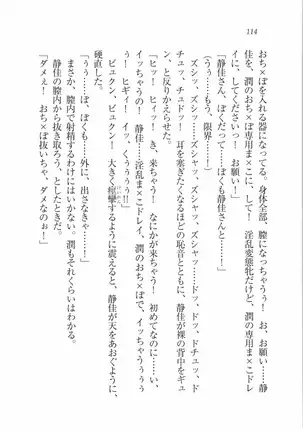 114
おち×ぽを入れる器になってる。身体全部、膣になっちゃうぅ! お、お願い……静
佳を、潤のおち×ぽ専用ま×こに、して! 淫乱変態牝だけど、潤の専用ま×こドレ
イに、してくださいっ! お願い!」
「静佳さん、ぼくだって……ぼくも静佳さんと……!」
(うぅ……もう、限界……!)
ズシャッ、ズシャッ、ズシャッ、ズシャッ、ズシャッ……ドッ、ドドッ、ド
チュッ、チュドッ! 耳を塞ぎたくなるほどの恥音とともに、静佳が裸の背中をギュ
ン、と反りかえらせた。
「ヒッ! ヒッ! き、来ちゃう! なにかが来ちゃう! 初めてなのに……
イッちゃうのぉ! 静佳……淫乱ま×こドレイ、潤のおち×ぽで、イッちゃうぅぅぅ
ぅ! ヒギィ! イッ、くぅぅぅぅ!!」
ビュクン、ビクン! 大きく痙攣するように震えると、静佳が天をあおぐように、
硬直した。
「うぅ……ぼ、ぼくも……外に、出さなきゃ……!」
まさか、膣内で射精するわけにはいかない。潤もそれくらいはわかる。
静佳の膣内から抜き取ろう、としたときだ。
「ダメぇ! おち×ぽ抜いちゃ、ダメなのぉ!」